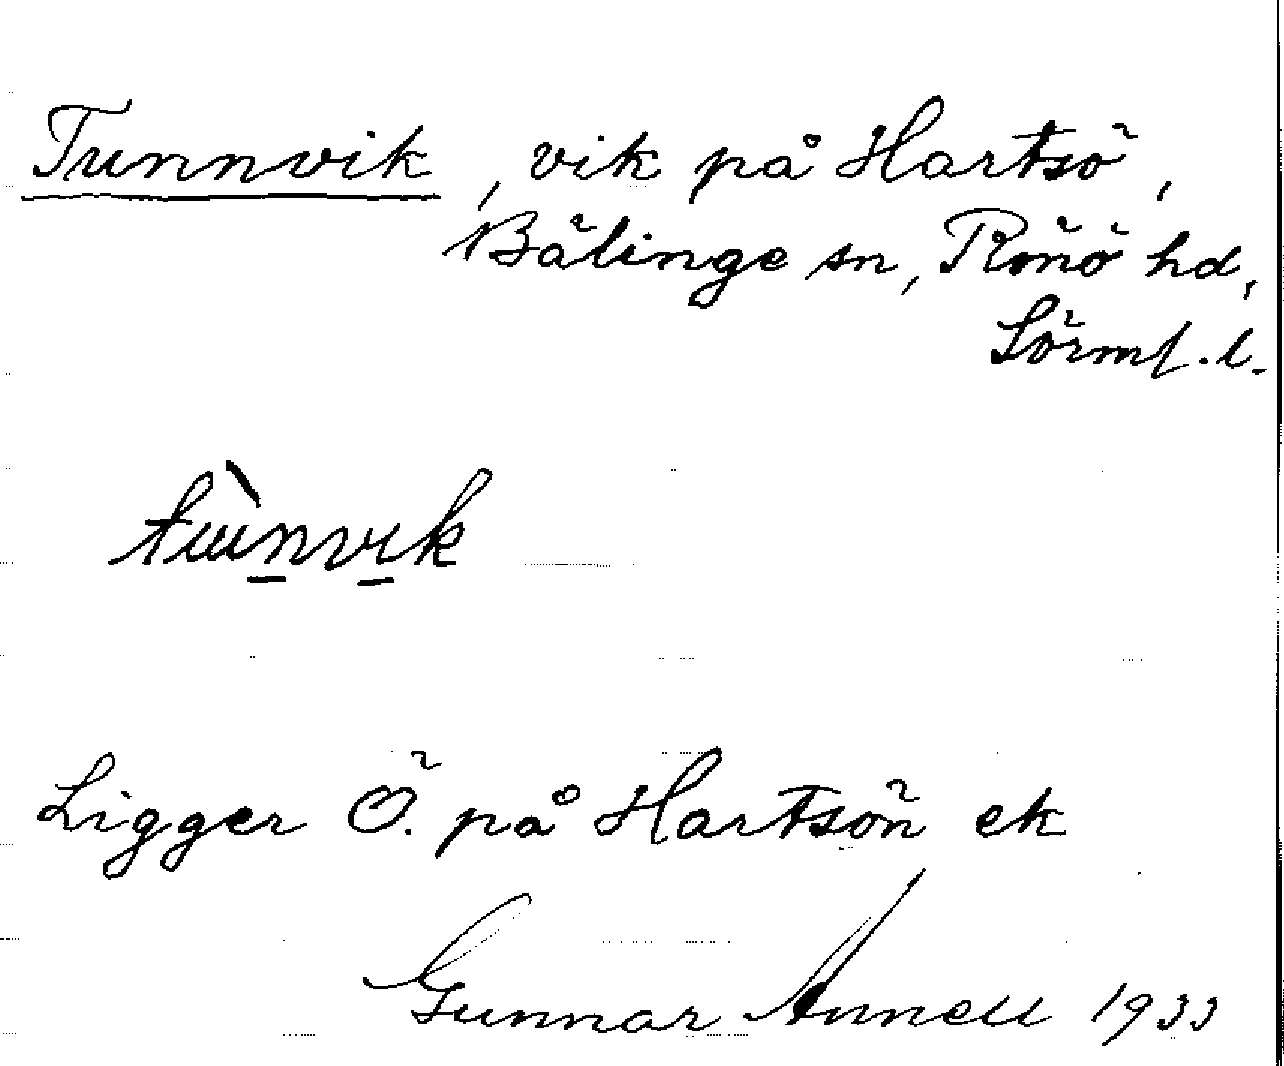 Tunnvik, vik på Hartsö,
Bälinge sn, Rönö hd,
Sörml. l.
tùnvik
Ligger Ö. på Hartsön ek
Gunnar Annell 1933